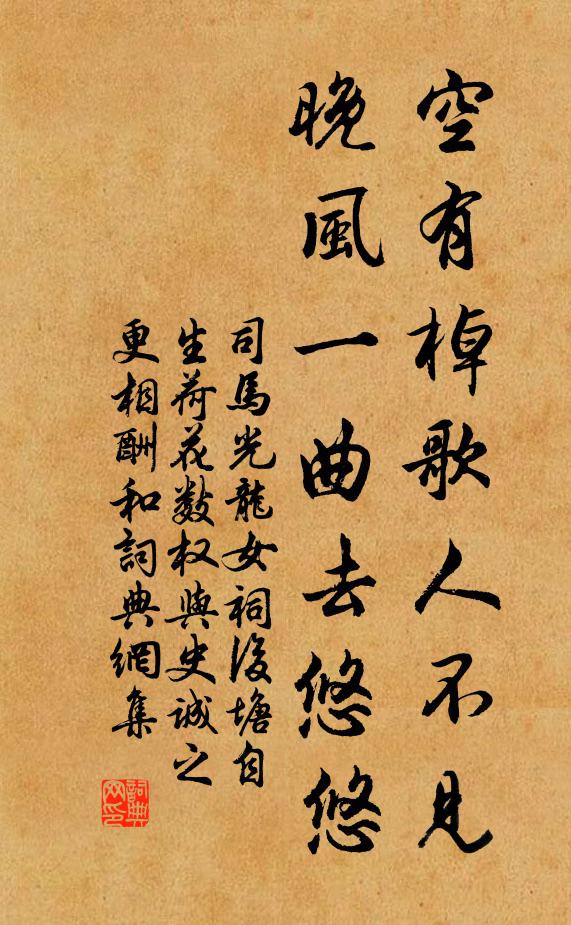 空有棹歌人不見
晚風一曲去悠悠
司馬光龍女祠後塘自
生荷花數枝與史誠之
更相酬和詞典網集
詞典
网印